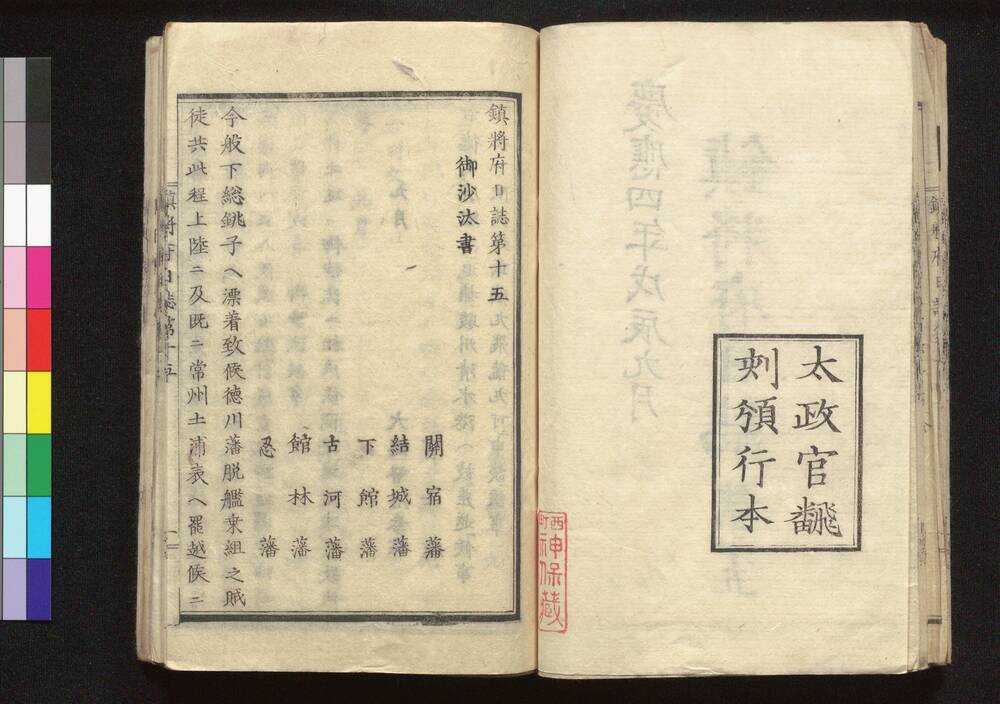 太政官飜
刻頒行本
西町
神保蔵
鎮将府日誌第十五
御沙汰書
關宿藩
結城藩
下館藩
古河藩
館林藩
忍藩
今般下総銚子ヘ漂着致候徳川藩脱艦乗組之賊
徒共此程上陸ニ及既ニ常州土浦表ヘ罷越候ニ
鎮将府日誌第十五
慶應四年戊辰九月